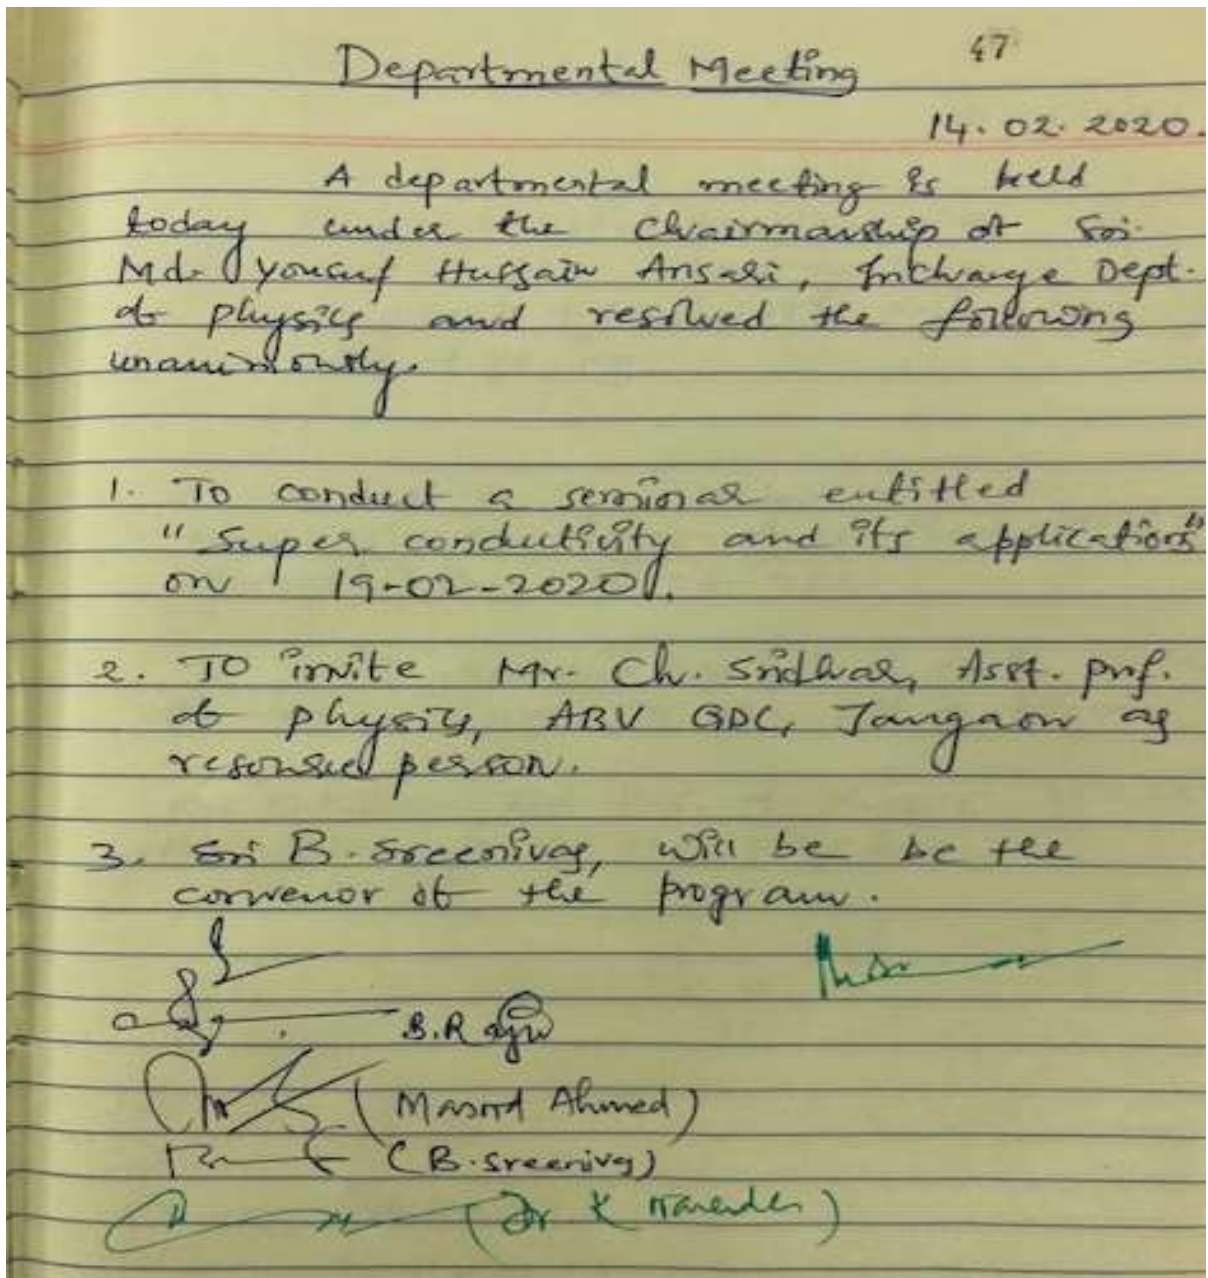 47
Departmental Meeting
14.02.2020.
A departmental meeting is held
today under the Chairmanship of Sri.
Md. Yousuf Hussain Ansari, Incharge Dept.
of physics and resolved the following
unanimously.
1. To conduct a seminar entitled
"Super conductivity and its applications"
on 19-02-2020.
2. TO invite Mr. Ch. Sridhar, Asst. prof.
of physics, ABV GDC, Jangaon as
resource person.
3. Sri B. Sreenivas, will be be the
convenor of the program.
B. Raju
(Masood Ahmed)
(B. Sreenivas)
(Dr K Narender)